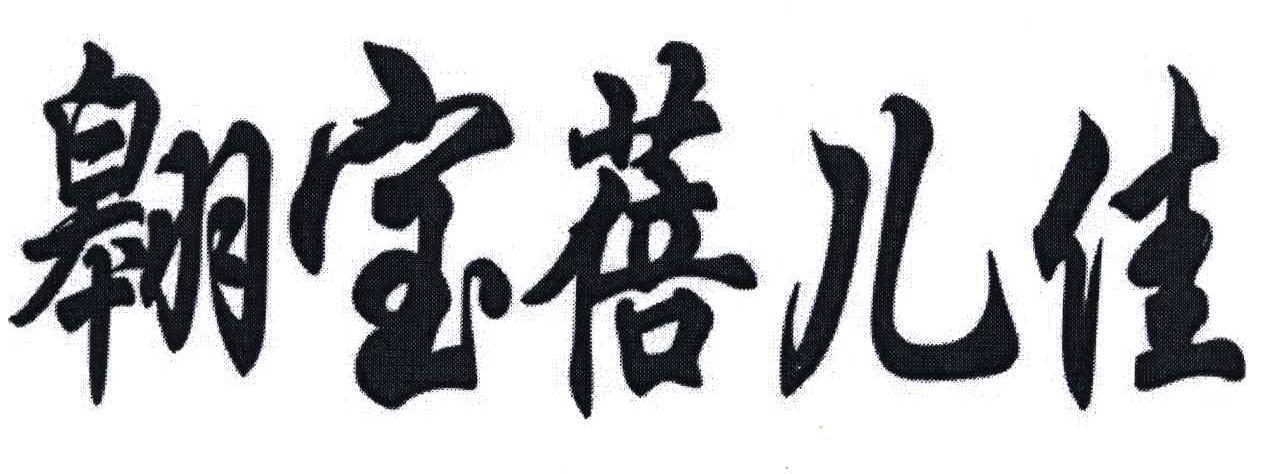 翱宝蓓儿佳